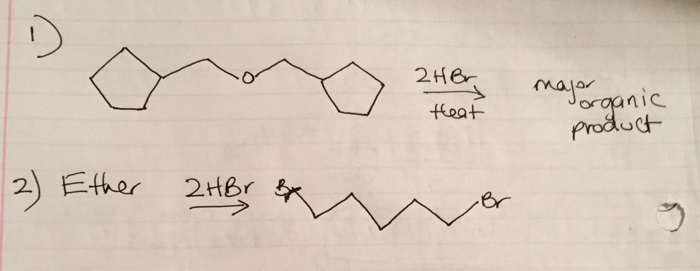 1)
O
2HBr
Heat
major
organic
product
2) Ether 2HBr Br Br